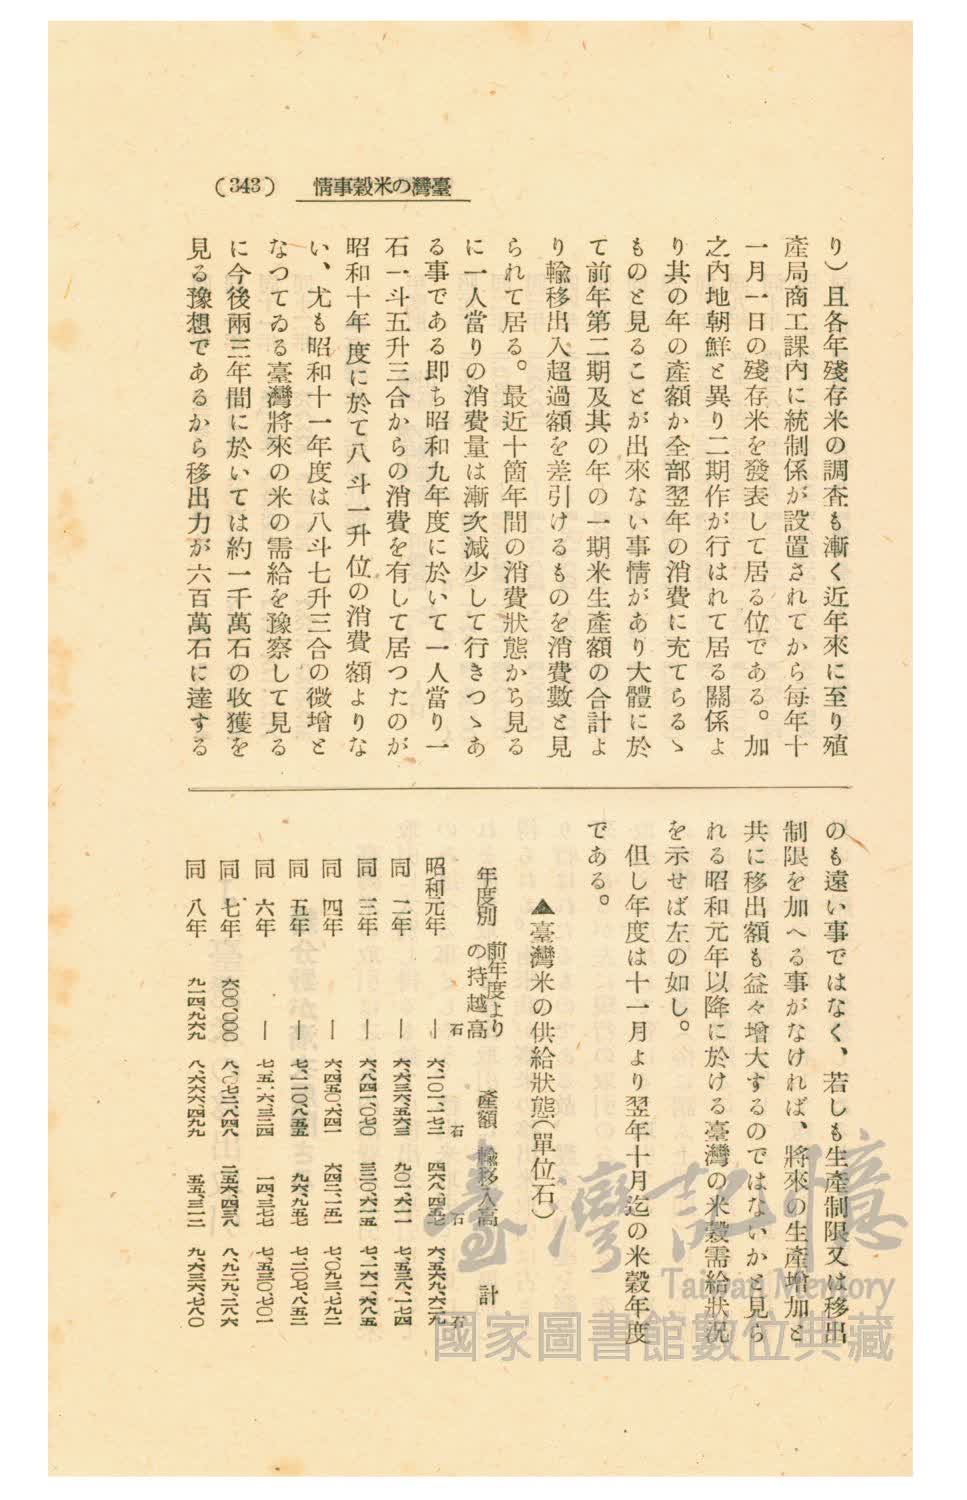 臺灣の米穀事情 (343)
り）且各年殘存米の調査も漸く近年來に至り殖
產局商工課內に統制係が設置されてから每年十
一月一日の殘存米を發表して居る位である。加
之內地朝鮮と異り二期作が行はれて居る關係よ
り其の年の產額か全部翌年の消費に充てらるゝ
ものと見ることが出來ない事情があり大體に於
て前年第二期及其の年の一期米生產額の合計よ
り輸移出入超過額を差引けるものを消費數と見
られて居る。最近十箇年間の消費狀態から見る
に一人當りの消費量は漸次減少して行きつゝあ
る事である卽ち昭和九年度に於いて一人當り一
石一斗五升三合からの消費を有して居つたのが
昭和十年度に於て八斗一升位の消費額よりな
い、尤も昭和十一年度は八斗七升三合の微增と
なつてゐる臺灣將來の米の需給を豫察して見る
に今後兩三年間に於いては約一千萬石の收獲を
見る豫想であるから移出力が六百萬石に達する
のも遠い事ではなく、若しも生產制限又は移出
制限を加へる事がなければ、將來の生產增加と
共に移出額も益々增大するのではないかと見ら
れる昭和元年以降に於ける臺灣の米穀需給狀況
を示せば左の如し。
但し年度は十一月より翌年十月迄の米穀年度
である。
▲臺灣米の供給狀態（單位石）
年度別 前年度よりの持越高 產額 輸移入高 計
石 石 石 石
昭和元年 ― 六、一〇一、一七二 四六八、四五七 六、五六九、六二九
同 二年 ― 六、六三六、五六三 九〇一、六一一 七、五三八、一七四
同 三年 ― 六、八四一、〇七〇 三二〇、六一五 七、一六一、六八五
同 四年 ― 六、四五〇、六四一 六四二、一五一 七、〇九三、七九二
同 五年 ― 七、一一〇、八五五 九六、九五七 七、二〇七、八五二
同 六年 ― 七、五一六、三二四 一四、三七七 七、五三〇、七〇一
同 七年 六〇〇、〇〇〇 八、〇七二、八四八 二五六、四三八 八、九二九、二八六
同 八年 九一四、九六九 八、六六六、四九九 五五、三一二 九、六三六、七八〇
臺灣記憶
Taiwan Memory
國家圖書館數位典藏